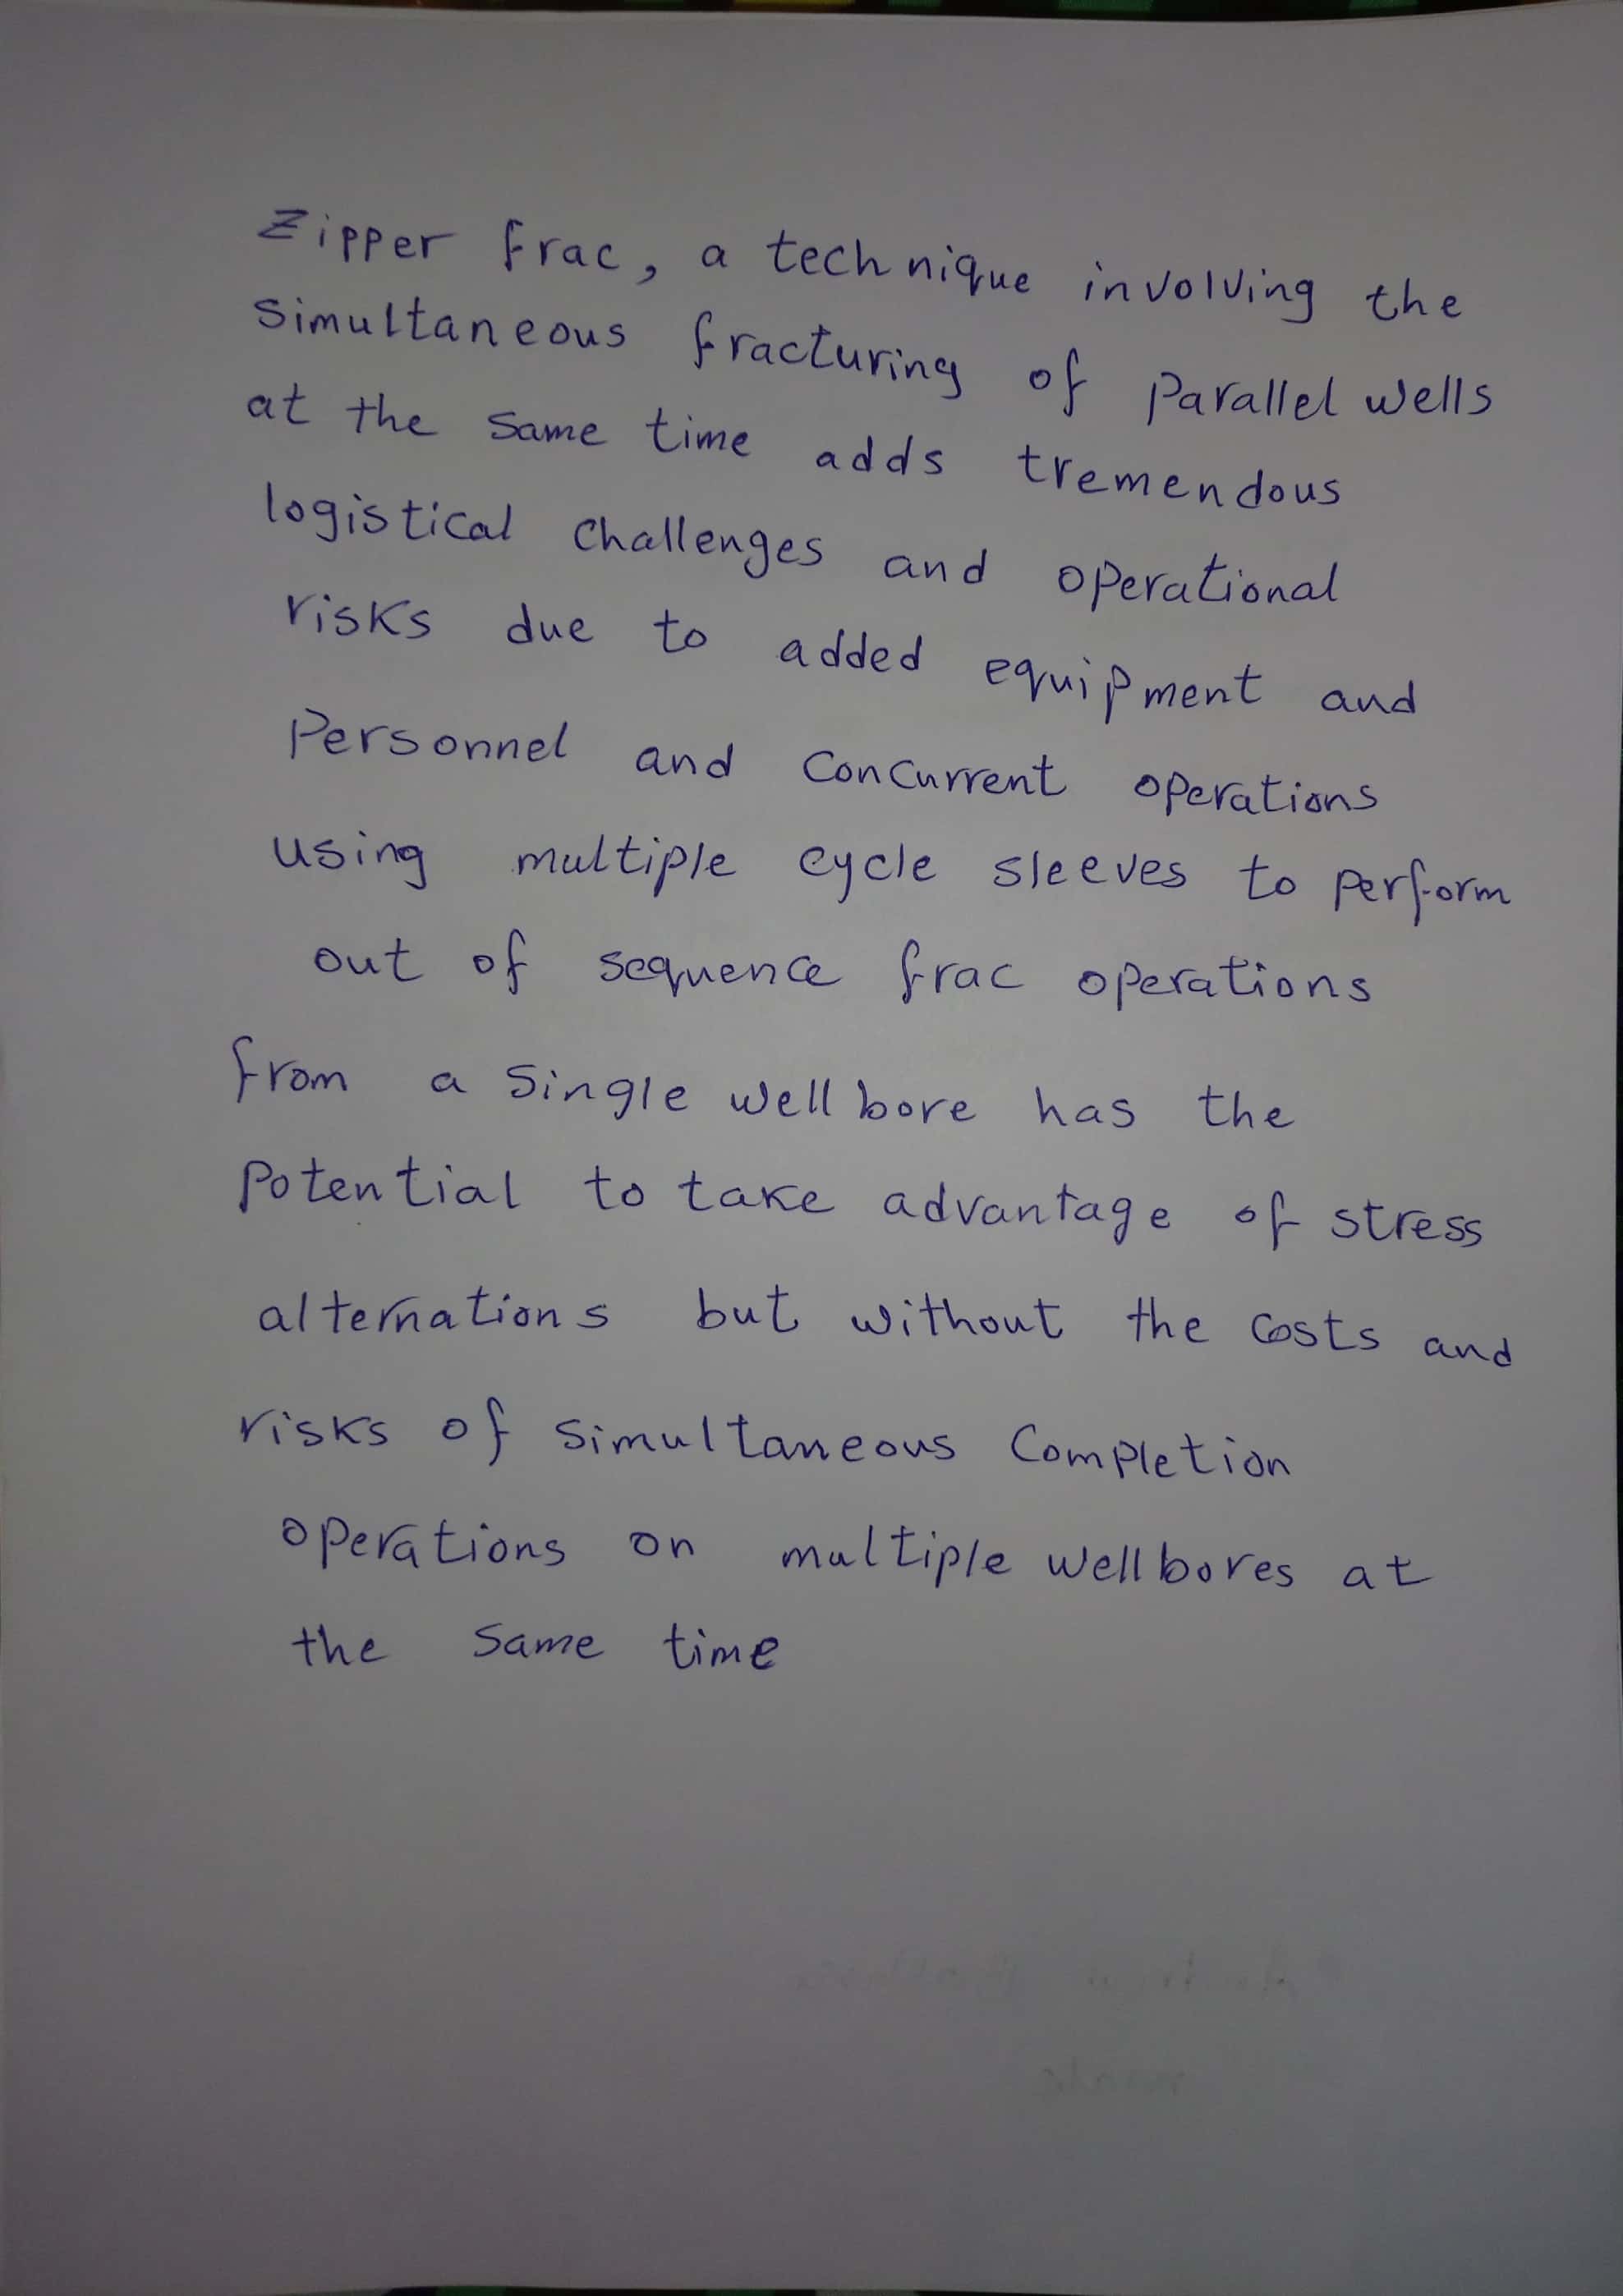 Zipper frac, a technique involving the
simultaneous fracturing of parallel wells
at the same time adds tremendous
logistical challenges and operational
risks due to added equipment and
Personnel and concurrent operations
using multiple cycle sleeves to perform
out of sequence frac operations
from a single wellbore has the
potential to take advantage of stress
alternations but without the costs and
risks of simultaneous completion
operations on multiple wellbores at
the same time